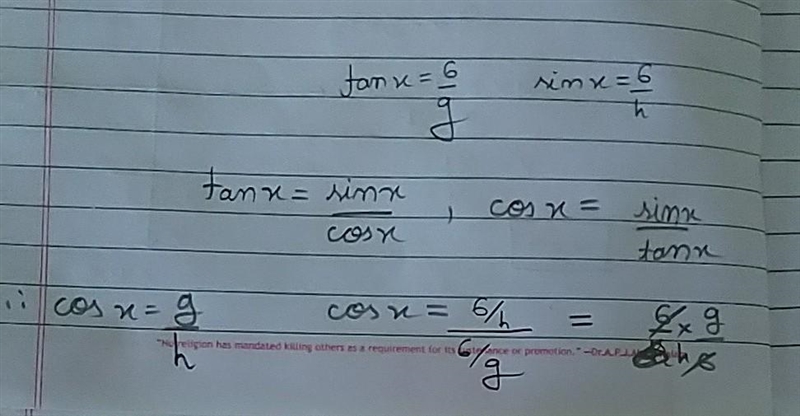 tanx = 6/g sinx = 6/h
tanx = sinx/cosx , cosx = sinx/tanx
∴ cosx = g/h cosx = 6/h / 6/g = 6/h × g/6
"No religion has mandated killing others as a requirement for its or promotion." —Dr.A.P.J.